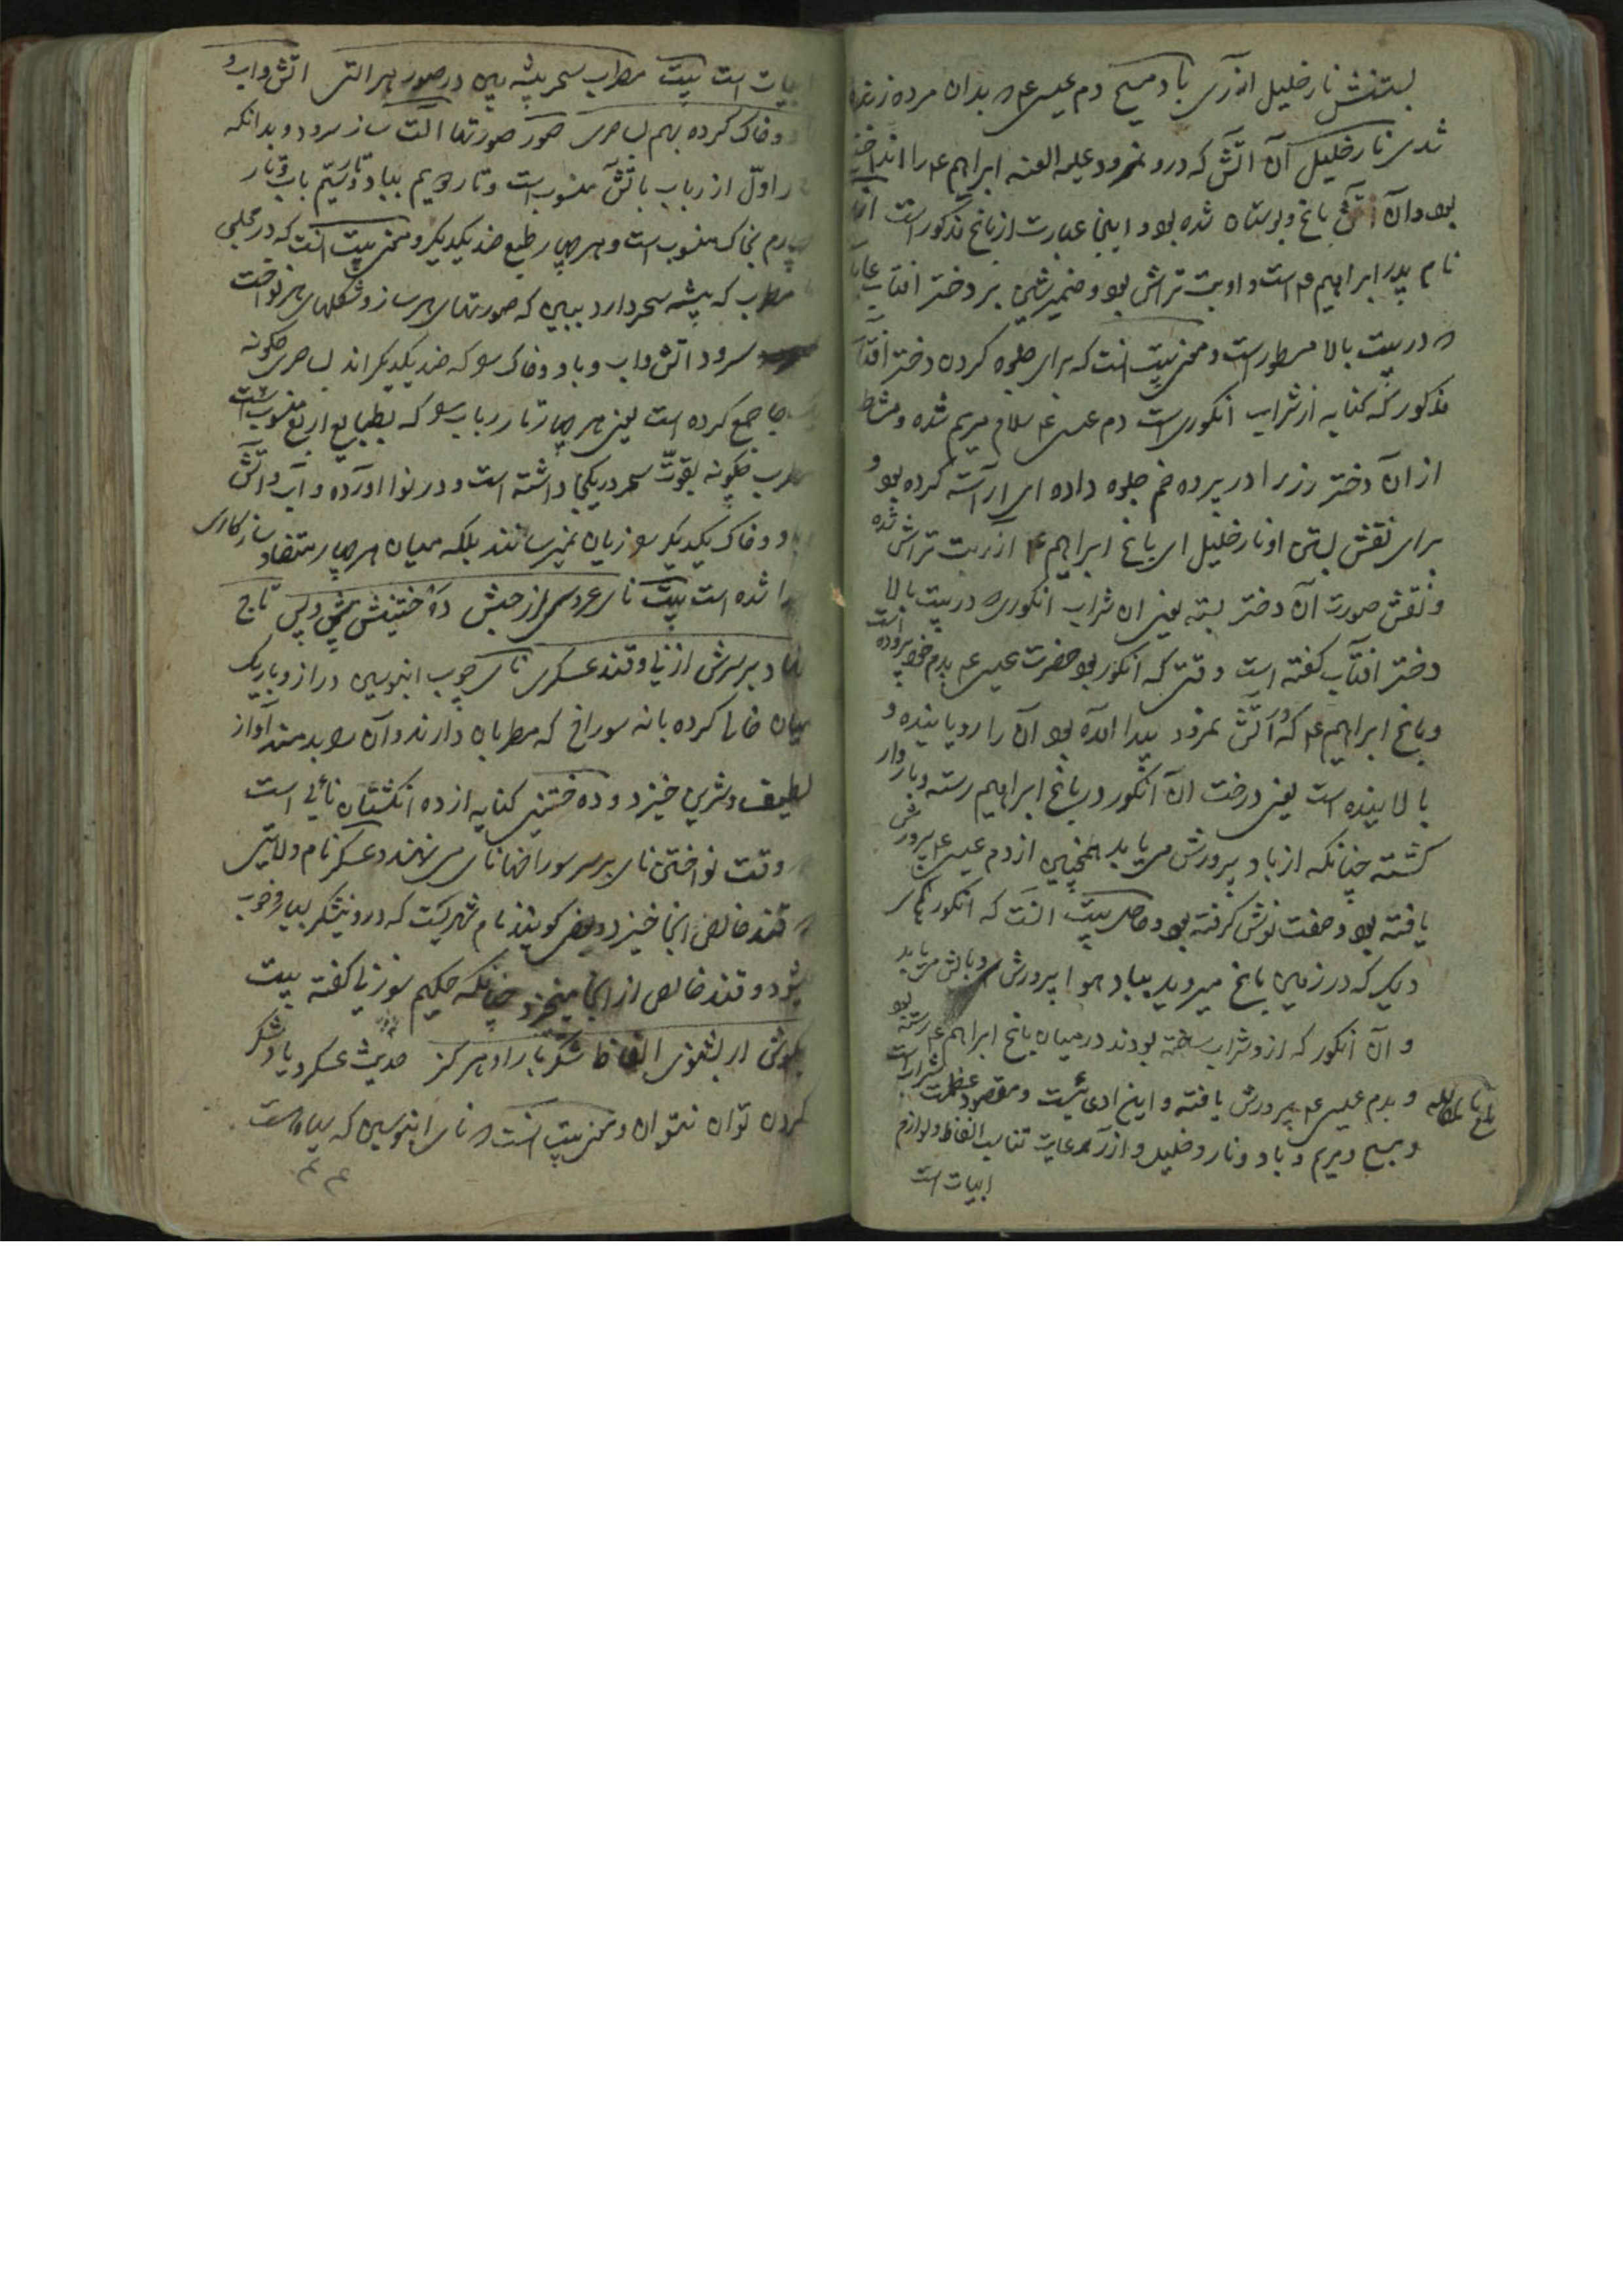 بستنش نار خلیل آزری باد مسیح دم عیسی ع م بدان مرده زنده
شدی نار خلیل آن آتش که درو نمرود علیه العنه ابراهیم ع م را انداخته
بود و آن آتش باغ و بوستان شده بود و اینجا عبارت از باغ مذکور است آزر
نام پدر ابراهیم ع م است و او بت تراش بود و ضمیر شین بر دختر آفتاب عاید
در بیت بالا مسطور است و معنی بیت آنست که برای جلوه کردن دختر آفتاب
مذکور که کنایه از شراب انگوری است دم عیسی ع سلام مریم شده و مشاطه
از آن دختر رز را در پرده خم جلوه داده ای آراسته کرده بود و
برای نقش بستن او نار خلیل ای باغ ابراهیم ع م آزر بت تراش شده
و نقش صورت آن دختر بسته یعنی آن شراب انگوری در بیت بالا
دختر آفتاب گفته است وقتی که انگور بود حضرت عیسی ع م بدم خود پروده است
و باغ ابراهیم ع م که در آتش نمرود پیدا آمده بود آن را رویانیده و
بالانیده است یعنی درخت آن انگور در باغ ابراهیم رسته و باردار
گشته چنانکه از باد پرورش می یابد همچنین از دم عیسی ع م پرورش
یافته بود و صفت نوش گرفته بود و حاصل بیت آنست که انگورهای
دیگر که در زمین باغ میروید بباد هوا پرورش و بالش می یابد
و آن انگور که ازو شراب ساخته بودند در میان باغ ابراهیم ع م رسته بود
و بدم عیسی ع م پرورش یافته و این ادعائیست و مقصود عظمت شراب است
و مسیح و مریم و باد و نار و خلیل و آزر رعایت تناسب الفاظ و لوازم
ابیات است
ابیات است بیت مطرب سحر پیشه بین در صور هر آلتی آتش و آب و
باد و خاک کرده بهم بساحری صور صورتها آلت ساز سرود و بدانکه
تار اول از رباب باتش منسوب است و تار دویم بباد و تار سیم باب و تار
چهارم بخاک منسوب است و هر چهار طبع ضد یکدیگر و معنی بیت آنست که در مجلس
مطرب که پیشه سحر دارد ببین که صورتهای هر ساز و شکلهای هر نواخت
سرود آتش و آب و باد و خاک را که ضد یکدیگر اند بساحری چگونه
یک جا جمع کرده است یعنی هر چهار تار رباب را که بطبایع اربع منسوبست
مطرب چگونه بقوت سحر در یکجا داشته است و در نوا آورده و آب و آتش
باد و خاک یکدیگر را زیان نمیرسانند بلکه میان هر چهار متضاد سازکاری
پیدا شده است بیت نای عروسی از حبش ده ختنیش پیش و پس تاج
نهاد بر سرش از نی و قند عسکری نای چوب آبنوسین دراز و باریک
میان خالی کرده با نه سوراخ که مطربان دارند و آن را بدمند آواز
لطیف و شرین خیزد و ده ختنی کنایه از ده انگشتان نائی است
وقت نواختن نای بر سر سوراخها نای می نهند و عسکر نام ولایتی
قند خالص آنجا خیزد و بعضی گویند نام شهریست که درو نیشکر بسیار و خوب
شود و قند خالص از آنجا میخیزد چنانکه حکیم سوزنی گفته بیت
بگوش ار بشنوی الفاظ شکربار او هرگز حدیث عسکر و یاد شکر
کردن توان نتوان و معنی بیت آنست نای آبنوسین که سیاه است